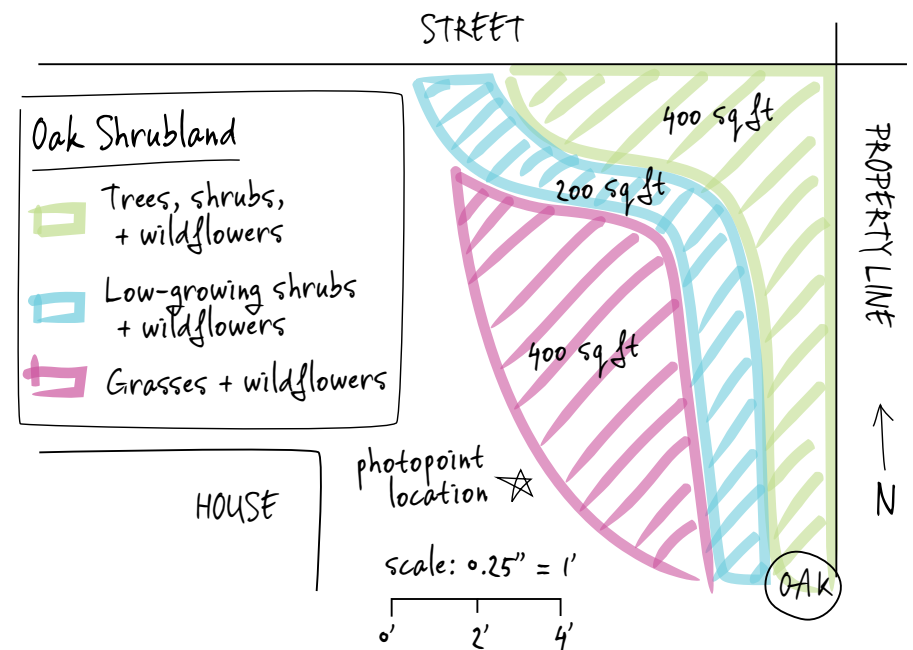 STREET
Oak Shrubland
Trees, shrubs,
+ wildflowers
Low-growing shrubs
+ wildflowers
Grasses + wildflowers
400 sq ft
200 sq ft
400 sq ft
PROPERTY LINE
N
HOUSE
photopoint
location
scale: 0.25" = 1'
0' 2' 4'
OAK